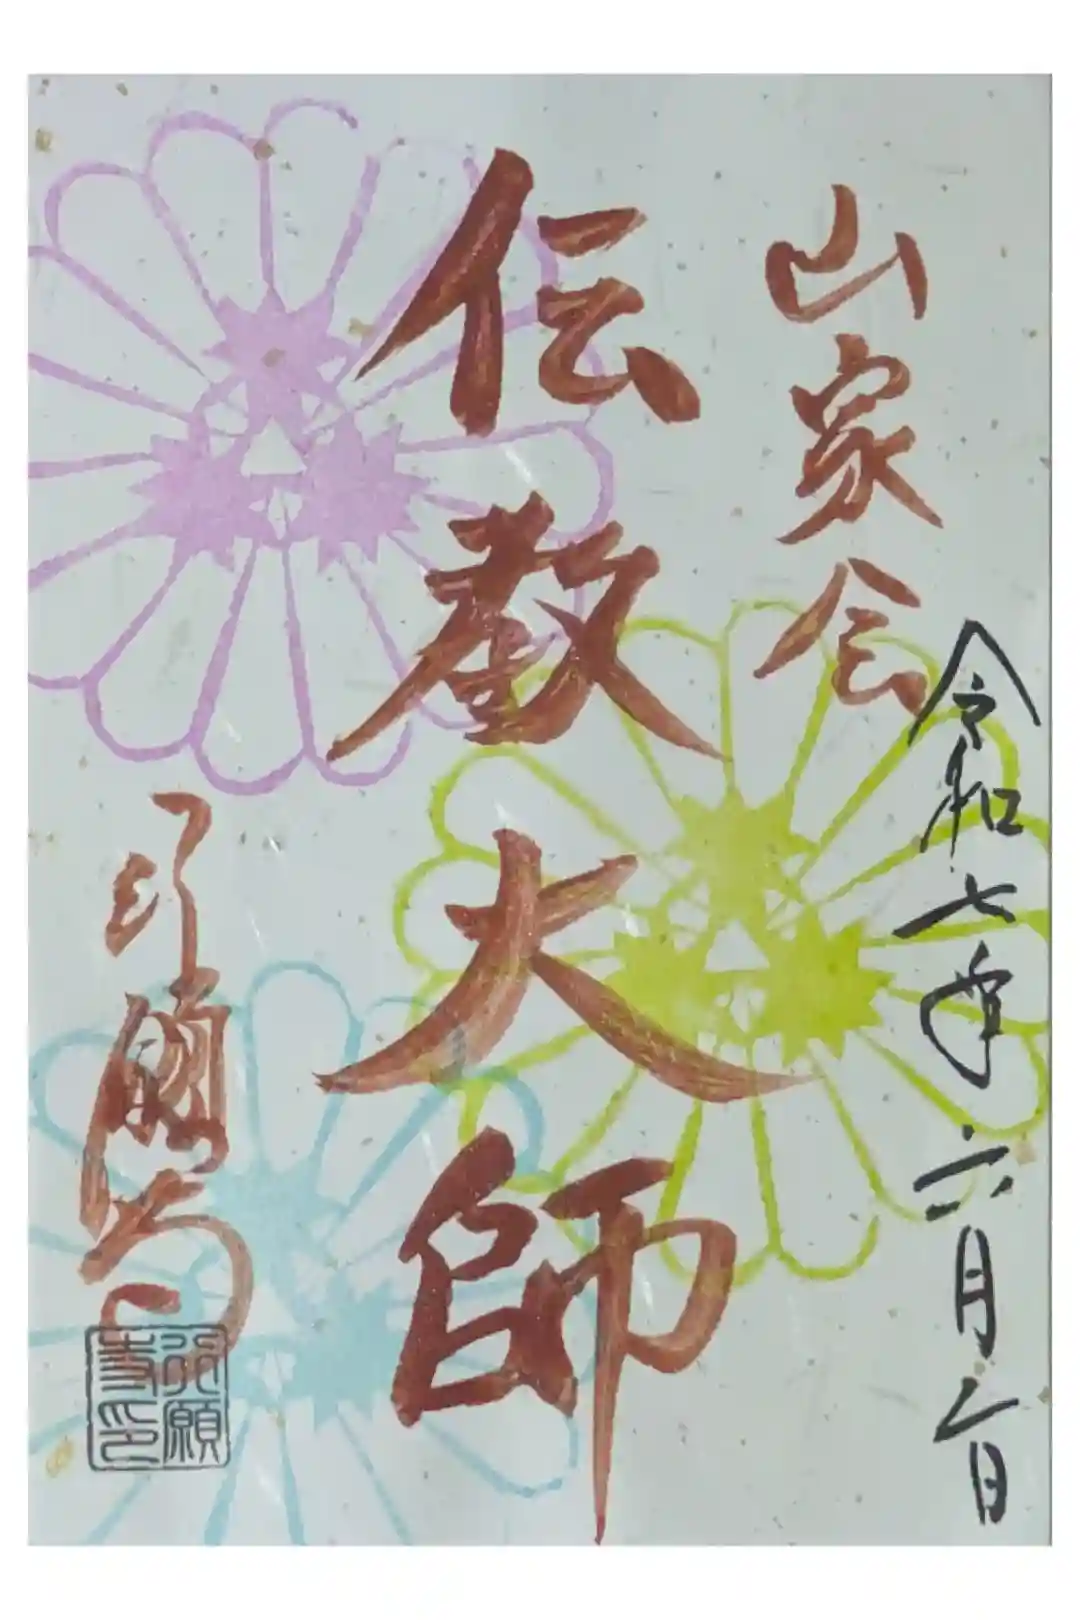 山家会
令和七年六月六日
伝教大師
行願寺
行願
寺印